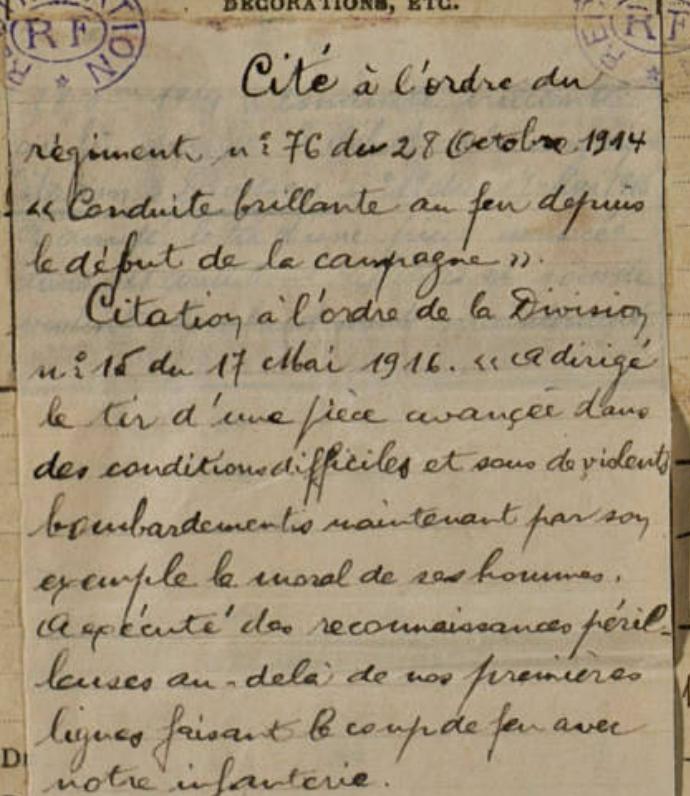 DÉCORATIONS, ETC.
RF
RF
Cité à l'ordre du
régiment n° 76 du 28 Octobre 1914
« Conduite brillante au feu depuis
le début de la campagne ».
Citation à l'ordre de la Division
n° 15 du 17 Mai 1916. « A dirigé
le tir d'une pièce avancée dans
des conditions difficiles et sous de violents
bombardements maintenant par son
exemple le moral de ses hommes.
A exécuté des reconnaissances péril-
leuses au-delà de nos premières
lignes faisant le coup de feu avec
notre infanterie.